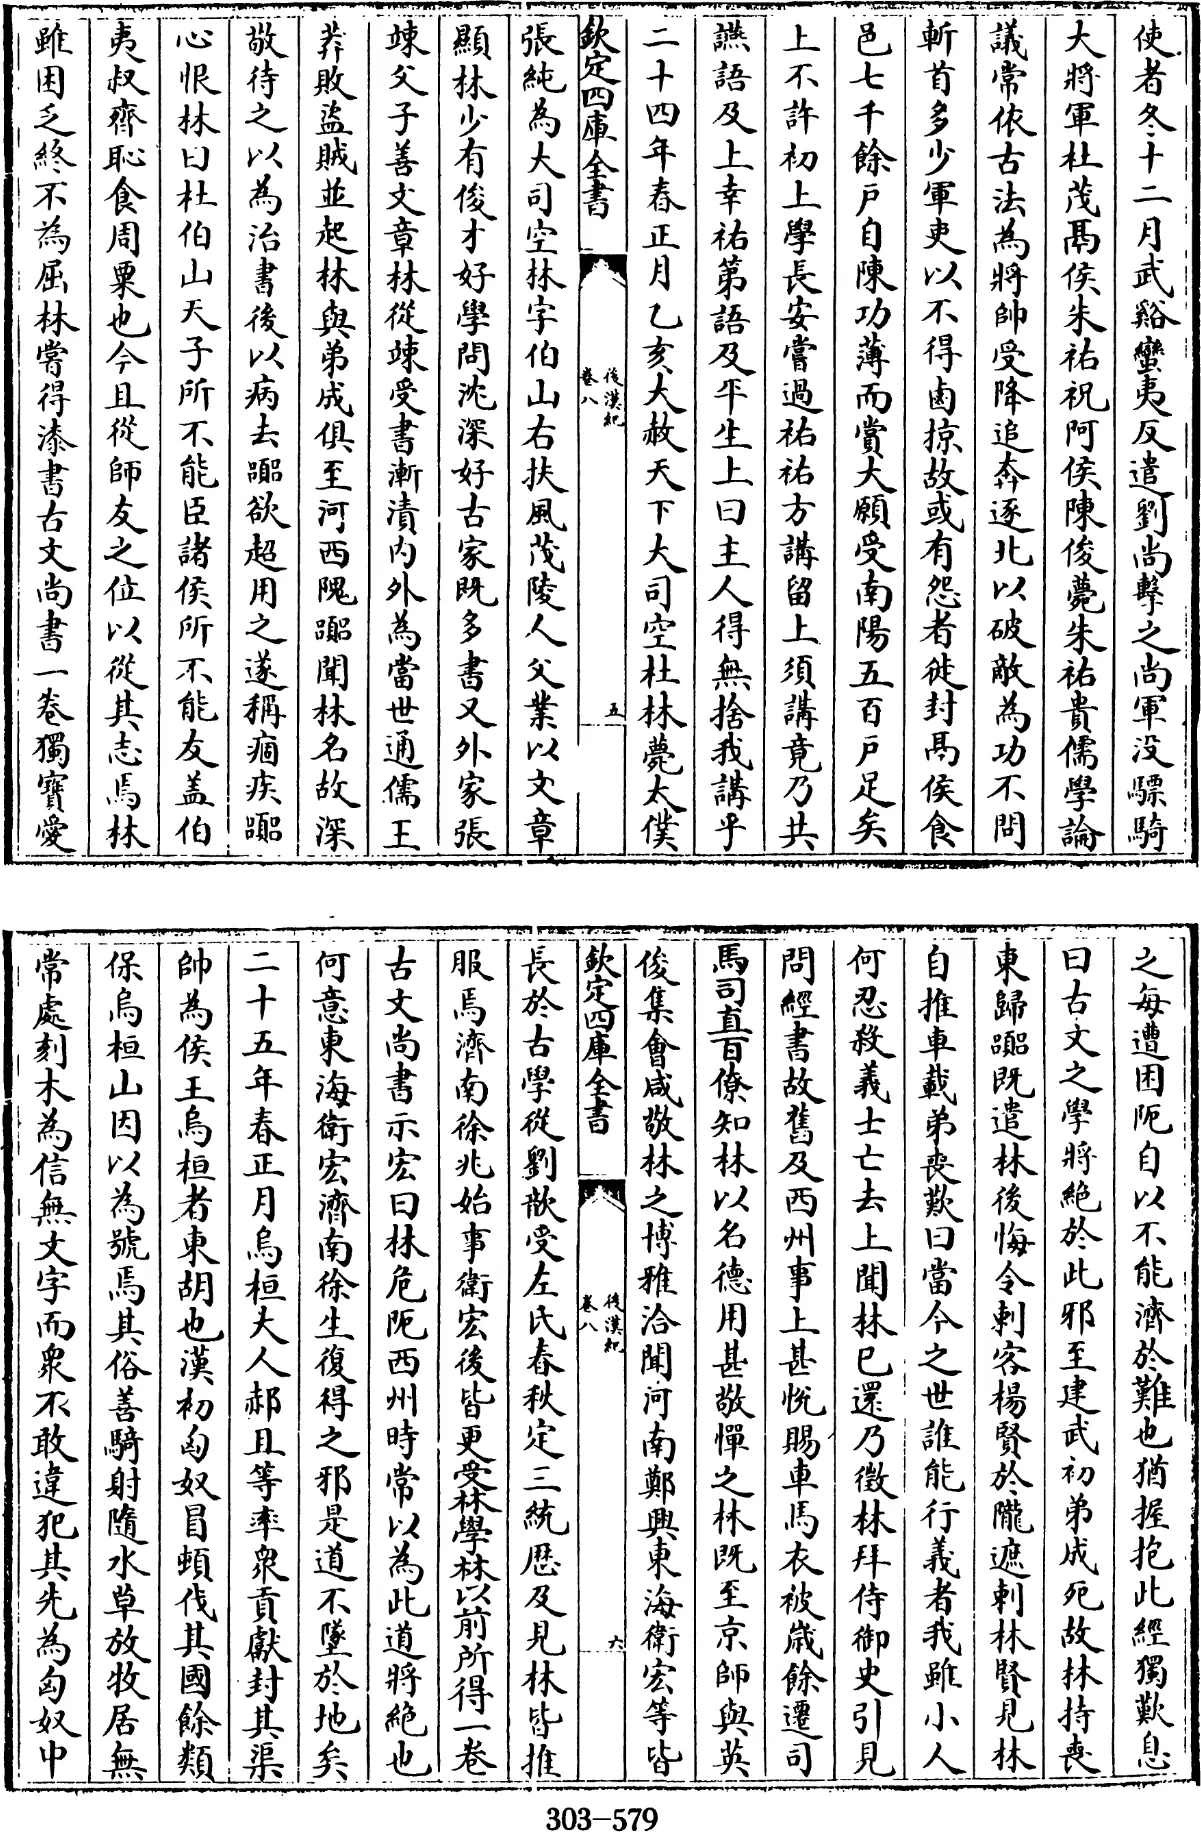 使者冬十二月武谿蠻夷反遣劉尚擊之尚軍没驃騎
大將軍杜茂鬲侯朱祐祝阿侯陳俊薨朱祐貴儒學論
議常依古法為將帥受降追奔逐北以破敵為功不問
斬首多少軍吏以不得鹵掠故或有怨者徙封鬲侯食
邑七千餘戸自陳功薄而賞大願受南陽五百戸足矣
上不許初上學長安嘗過祐祐方講留上須講竟乃共
讌語及上幸祐第語及平生上曰主人得無捨我講乎
二十四年春正月乙亥大赦天下大司空杜林薨太僕
欽定四庫全書
後漢紀
卷八
五
張純為大司空林字伯山右扶風茂陵人父業以文章
顯林少有俊才好學問沈深好古家既多書又外家張
竦父子善文章林從竦受書漸漬内外為當世通儒王
莽敗盜賊並起林與弟成俱至河西隗躧聞林名故深
敬待之以為治書後以病去躧欲超用之遂稱痼疾躧
心恨林曰杜伯山天子所不能臣諸侯所不能友盖伯
夷叔齊恥食周粟也今且從師友之位以從其志焉林
雖困乏終不為屈林嘗得漆書古文尚書一卷獨寳愛
之每遭困阨自以不能濟於難也猶握抱此經獨歎息
曰古文之學將絶於此邪至建武初弟成死故林持喪
東歸躧既遣林後悔令刺客楊賢於隴遮刺林賢見林
自推車載弟喪歎曰當今之世誰能行義者我雖小人
何忍殺義士亡去上聞林已還乃徵林拜侍御史引見
問經書故舊及西州事上甚悅賜車馬衣被歳餘遷司
馬司直百僚知林以名德用甚敬憚之林既至京師與英
俊集會咸敬林之博雅洽聞河南鄭興東海衛宏等皆
欽定四庫全書
後漢紀
卷八
六
長於古學從劉歆受左氏春秋定三統歴及見林皆推
服焉濟南徐兆始事衛宏後皆更受林學林以前所得一卷
古文尚書示宏曰林危阨西州時常以為此道將絶也
何意東海衛宏濟南徐生復得之邪是道不墜於地矣
二十五年春正月烏桓大人郝且等率衆貢獻封其渠
帥為侯王烏桓者東胡也漢初匈奴冒頓伐其國餘類
保烏桓山因以為號焉其俗善騎射隨水草放牧居無
常處刻木為信無文字而衆不敢違犯其先為匈奴中
303-579